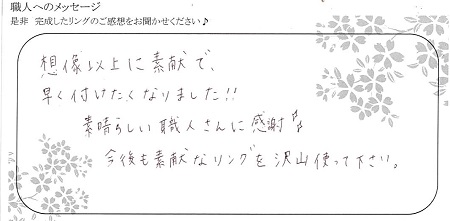 職人へのメッセージ
是非 完成したリングのご感想をお聞かせください♪
想像以上に素献で、
早く付けたくなりました!!
素晴らしい職人さんに感謝♪
今後も素献なリングを沢山使って下さい。